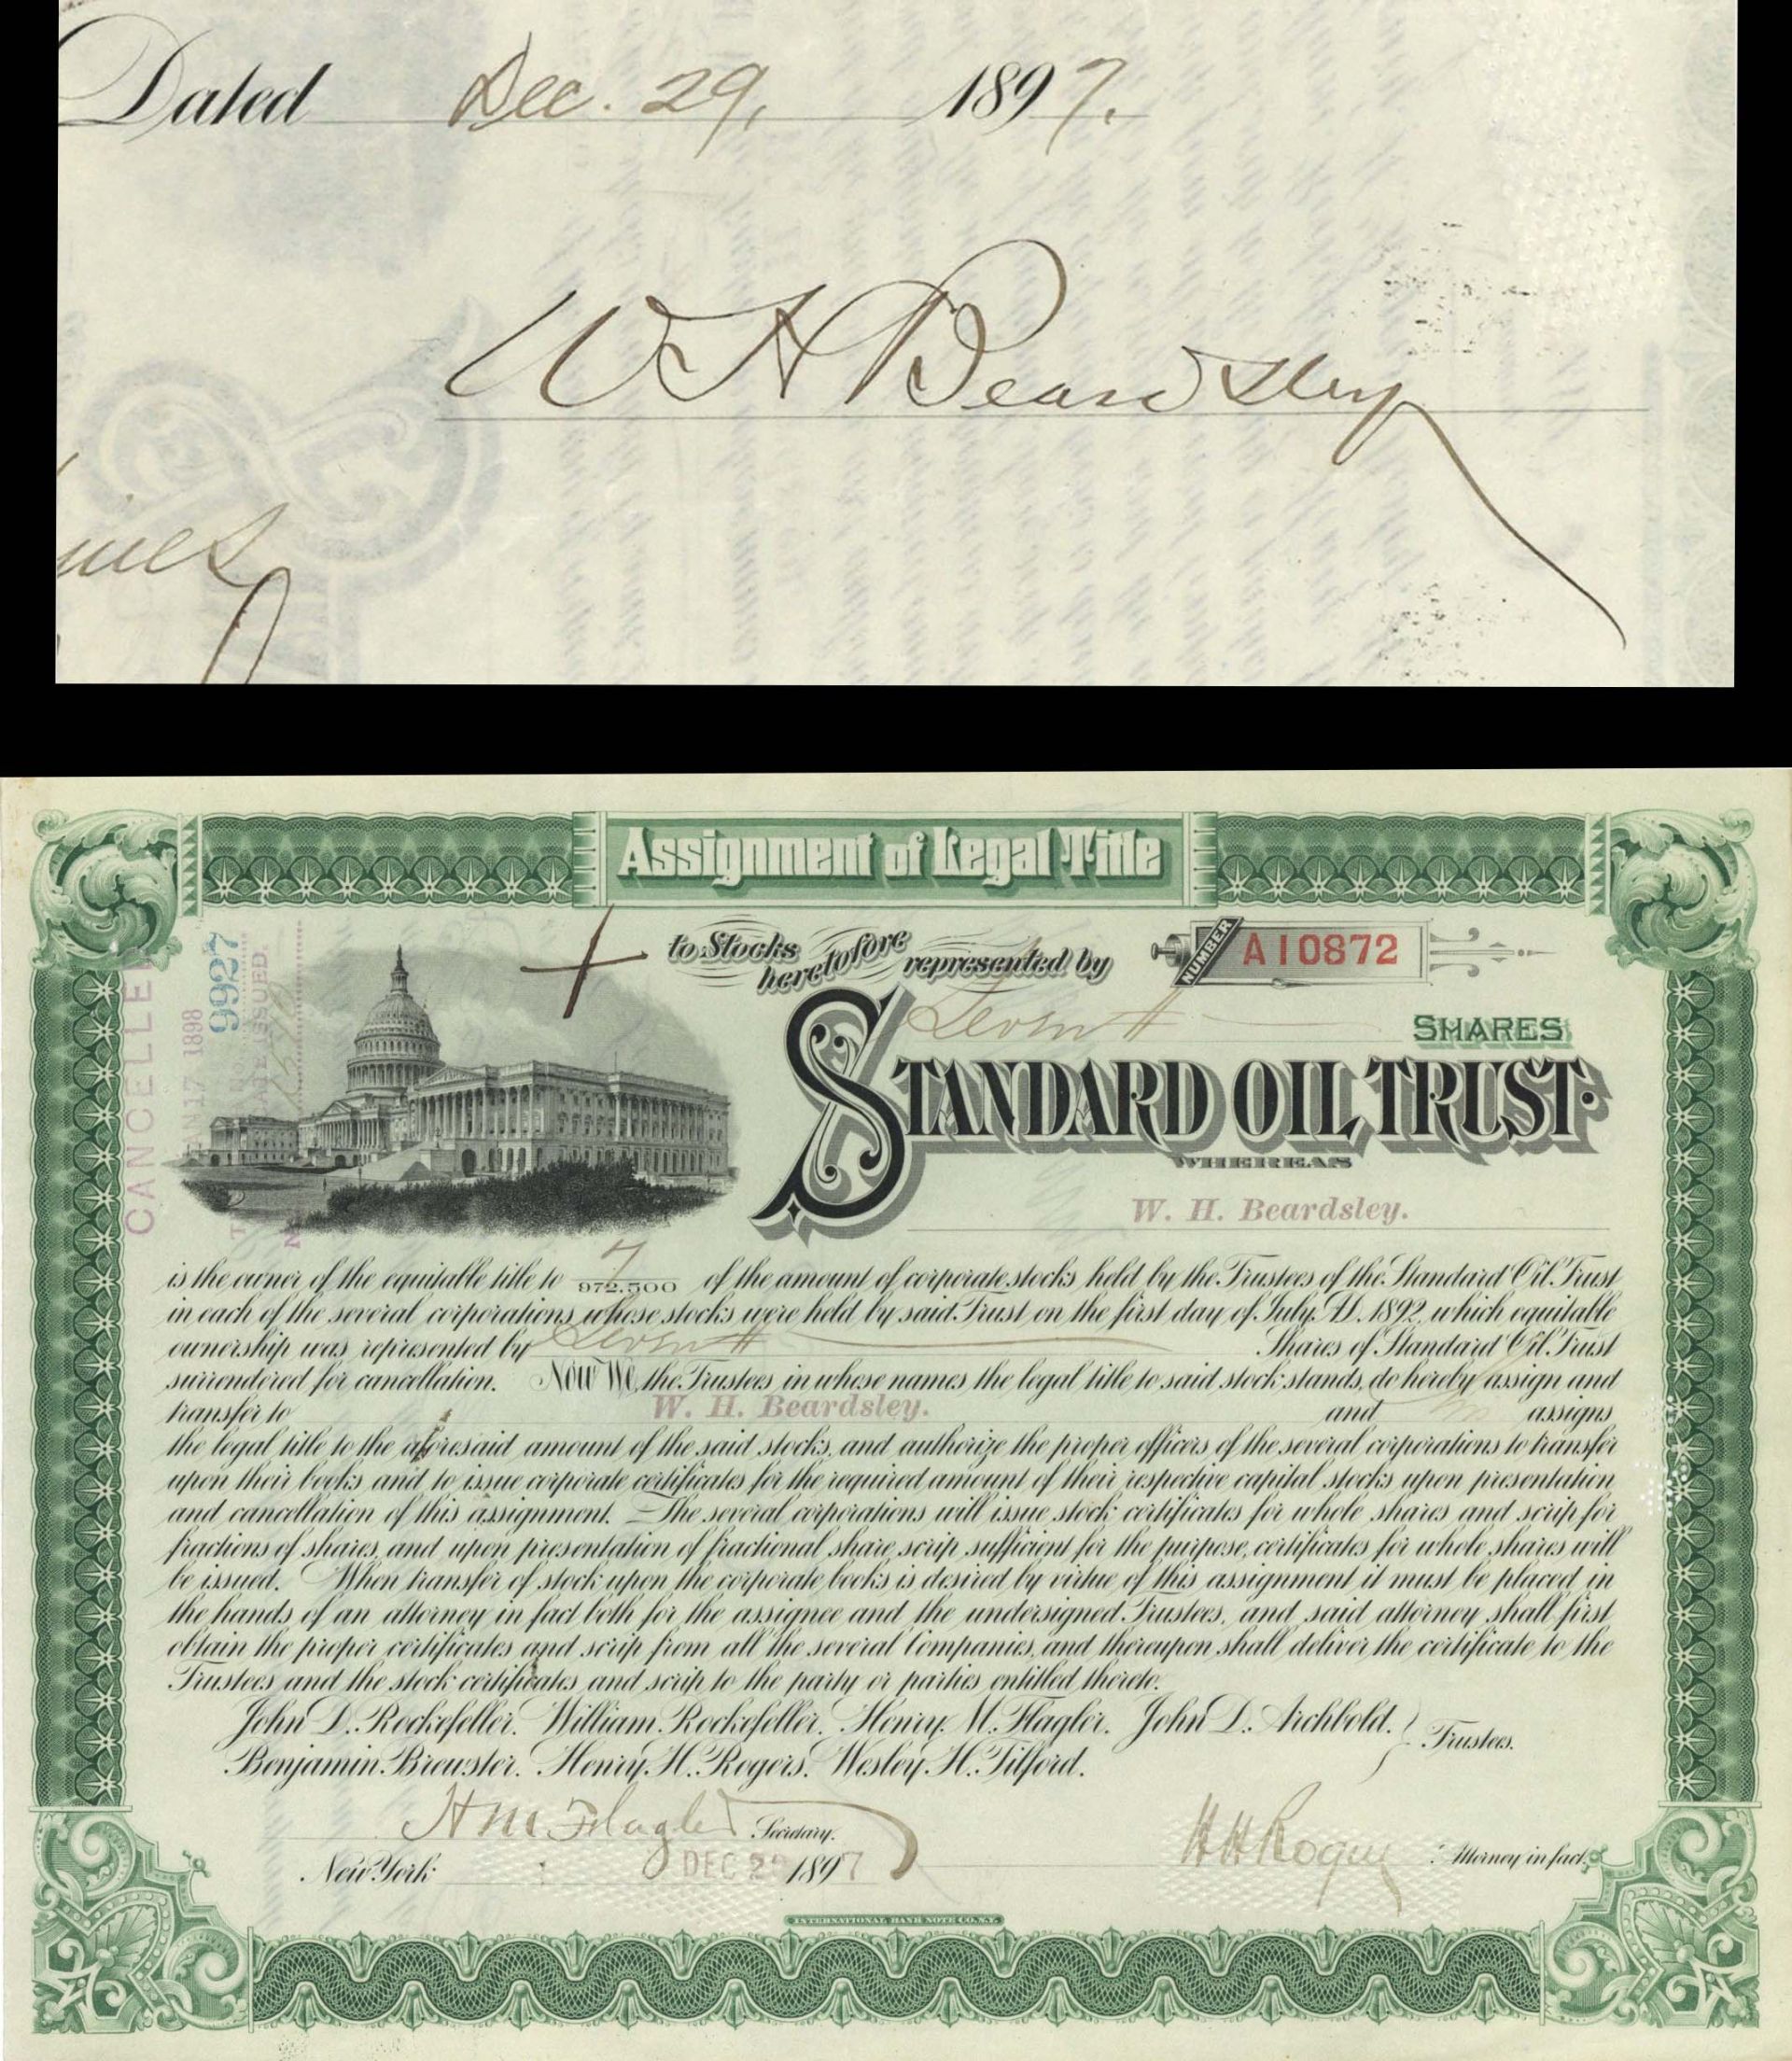 Dated Dec. 29, 1897.
W H Beardsley
Assignment of Legal Title
to Stocks heretofore represented by
NUMBER A10872
Seven
SHARES
STANDARD OIL TRUST.
WHEREAS
W. H. Beardsley.
CANCELLE
JAN 17 1898
9927
ISSUED.
is the owner of the equitable title to 7/972.500 of the amount of corporate stocks held by the Trustees of the Standard Oil Trust
in each of the several corporations whose stocks were held by said Trust on the first day of July A.D. 1892, which equitable
ownership was represented by Seven Shares of Standard Oil Trust
surrendered for cancellation. Now We, the Trustees, in whose names the legal title to said stock stands, do hereby assign and
transfer to W. H. Beardsley. and assigns
the legal title to the aforesaid amount of the said stocks, and authorize the proper officers of the several corporations to transfer
upon their books and to issue corporate certificates for the required amount of their respective capital stocks upon presentation
and cancellation of this assignment. The several corporations will issue stock certificates for whole shares and scrip for
fractions of shares, and upon presentation of fractional share scrip sufficient for the purpose, certificates for whole shares will
be issued. When transfer of stock upon the corporate books is desired by virtue of this assignment it must be placed in
the hands of an attorney in fact both for the assignee and the undersigned Trustees, and said attorney shall first
obtain the proper certificates and scrip from all the several Companies, and thereupon shall deliver the certificate to the
Trustees and the stock certificates and scrip to the party or parties entitled thereto.
John D. Rockefeller. William Rockefeller. Henry M. Flagler. John D. Archbold.
Benjamin Brewster. Henry H. Rogers. Wesley H. Tilford.
Trustees.
H M Flagler Secretary.
H H Rogers Attorney in fact.
New York DEC 29 1897
INTERNATIONAL BANK NOTE CO. N.Y.